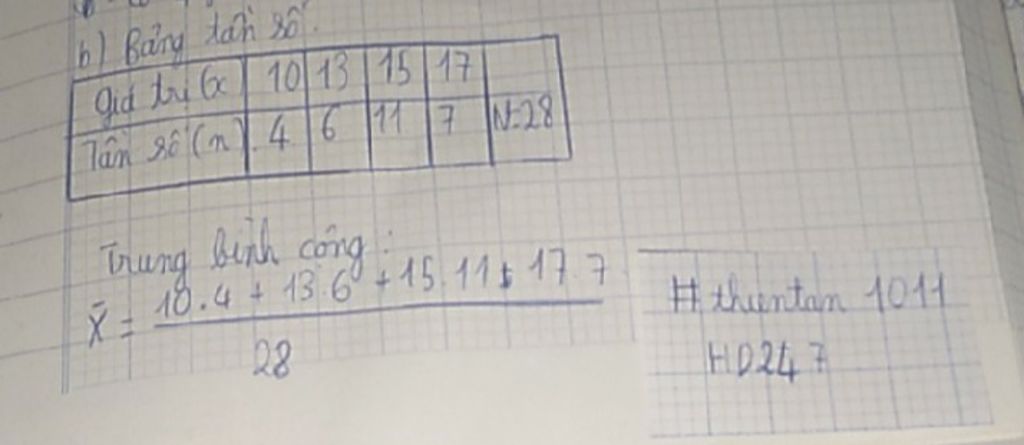 b) Bảng tần số.
giá trị (x 10 13 15 17
Tần số (n) 4 6 11 7 N=28
Trung bình cộng:
X̄ = 10.4 + 13.6 + 15.11 + 17.7
28
# thuntan 1011
HD247